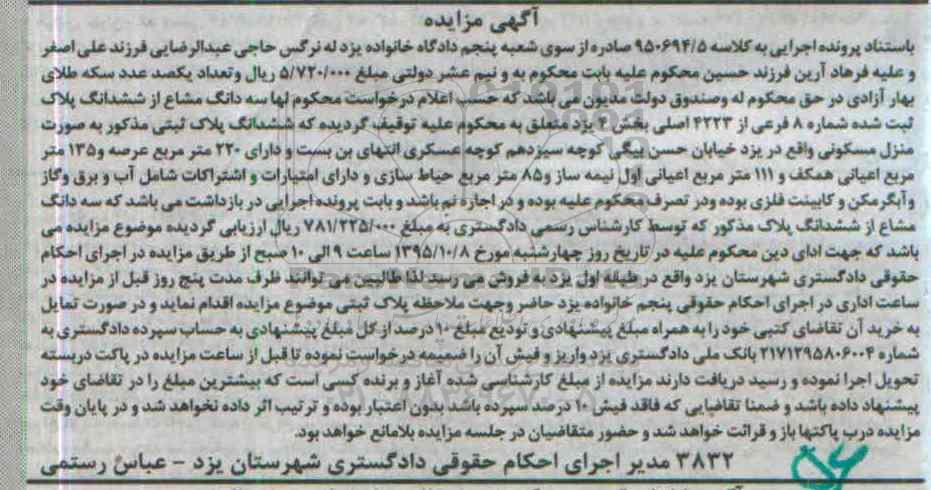 آگهی مزایده
باستناد پرونده اجرایی به کلاسه ۹۵۰۶۹۴/۵ صادره از سوی شعبه پنجم دادگاه خانواده یزد له نرگس حاجی عبدالرضایی فرزند علی اصغر
و علیه فرهاد آرین فرزند حسین محکوم علیه بابت محکوم به و نیم عشر دولتی مبلغ ۵/۷۲۰/۰۰۰ ریال وتعداد یکصد عدد سکه طلای
بهار آزادی در حق محکوم له وصندوق دولت مدیون می باشد که حسب اعلام درخواست محکوم لها سه دانگ مشاع از ششدانگ پلاک
ثبت شده شماره ۸ فرعی از ۴۲۲۳ اصلی بخش ۱ یزد متعلق به محکوم علیه توقیف گردیده که ششدانگ پلاک ثبتی مذکور به صورت
منزل مسکونی واقع در یزد خیابان حسن بیگی کوچه سیزدهم کوچه عسکری انتهای بن بست و دارای ۲۲۰ متر مربع عرصه و۱۳۵ متر
مربع اعیانی همکف و ۱۱۱ متر مربع اعیانی اول نیمه ساز و۸۵ متر مربع حیاط سازی و دارای امتیازات و اشتراکات شامل آب و برق وگاز
وآبگرمکن و کابینت فلزی بوده ودر تصرف محکوم علیه بوده و در اجاره نم باشد و بابت پرونده اجرایی در بازداشت می باشد که سه دانگ
مشاع از ششدانگ پلاک مذکور که توسط کارشناس رسمی دادگستری به مبلغ ۷۸۱/۲۲۵/۰۰۰ ریال ارزیابی گردیده موضوع مزایده می
باشد که جهت ادای دین محکوم علیه در تاریخ روز چهارشنبه مورخ ۱۳۹۵/۱۰/۸ ساعت ۹ الی ۱۰ صبح از طریق مزایده در اجرای احکام
حقوقی دادگستری شهرستان یزد واقع در طبقه اول یزد به فروش می رسد لذا طالبین می توانند ظرف مدت پنج روز قبل از مزایده در
ساعت اداری در اجرای احکام حقوقی پنجم خانواده یزد حاضر وجهت ملاحظه پلاک ثبتی موضوع مزایده اقدام نماید و در صورت تمایل
به خرید آن تقاضای کتبی خود را به همراه مبلغ پیشنهادی و تودیع مبلغ ۱۰ درصد از کل مبلغ پیشنهادی به حساب سپرده دادگستری به
شماره ۲۱۷۱۲۹۵۸۰۶۰۰۴ بانک ملی دادگستری یزد واریز و فیش آن را ضمیمه درخواست نموده تا قبل از ساعت مزایده در پاکت دربسته
تحویل اجرا نموده و رسید دریافت دارند مزایده از مبلغ کارشناسی شده آغاز و برنده کسی است که بیشترین مبلغ را در تقاضای خود
پیشنهاد داده باشد و ضمنا تقاضایی که فاقد فیش ۱۰ درصد سپرده باشد بدون اعتبار بوده و ترتیب اثر داده نخواهد شد و در پایان وقت
مزایده درب پاکتها باز و قرائت خواهد شد و حضور متقاضیان در جلسه مزایده بلامانع خواهد بود.
۳۸۳۲ مدیر اجرای احکام حقوقی دادگستری شهرستان یزد - عباس رستمی